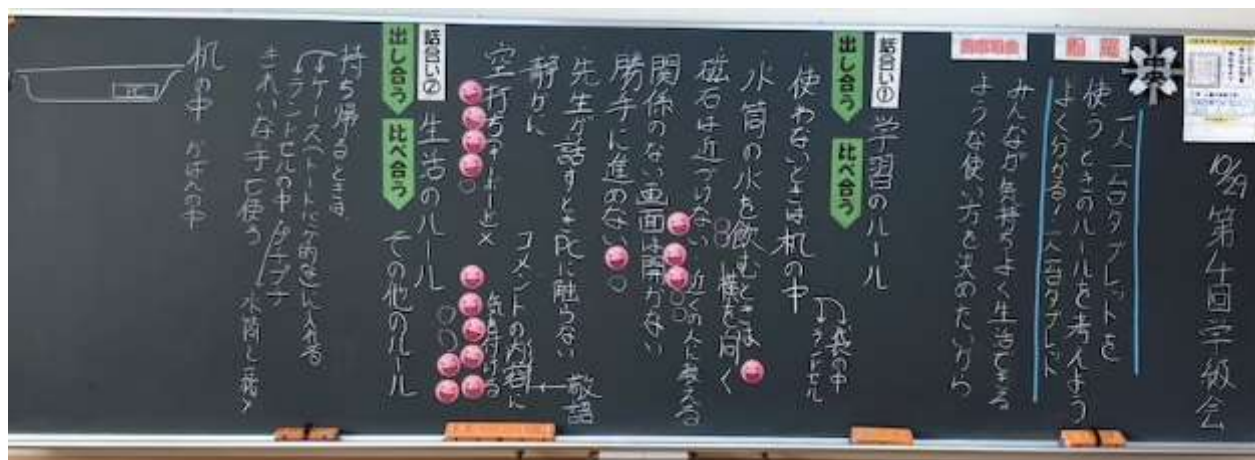 10/29 第4回学級会
中央
議題
一人一台タブレットを
使うときのルールを考えよう
よく分かる!一人一台タブレット
提案理由
みんなが気持ちよく生活できる
ような使い方を決めたいから
話合い①
学習のルール
出し合う
比べ合う
使わないときは机の中
袋の中
ランドセル
水筒の水を飲むときは
横を向く
磁石は近づけない
近くの人に教える
関係のない画面は開かない
勝手に進めない
先生が話すときPCに触らない
静かに
コメントの内容に
気を付ける
敬語
空打ち
話合い②
生活のルール
その他のルール
出し合う
比べ合う
持ち帰るときは
ランドセルの中
に入れる
きれいな手で使う
水筒と
机の中
かばんの中